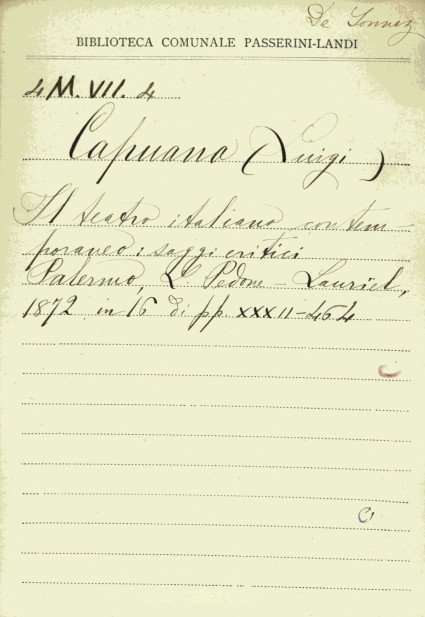 De
BIBLIOTECA COMUNALE PASSERINI-LANDI
4 M. VII. 4
Capuana (Luigi)
Il teatro italiano contem-
poraneo: saggi critici
Palermo, L Pedone-Lauriel,
1872 in 16 di pp. XXXII-464